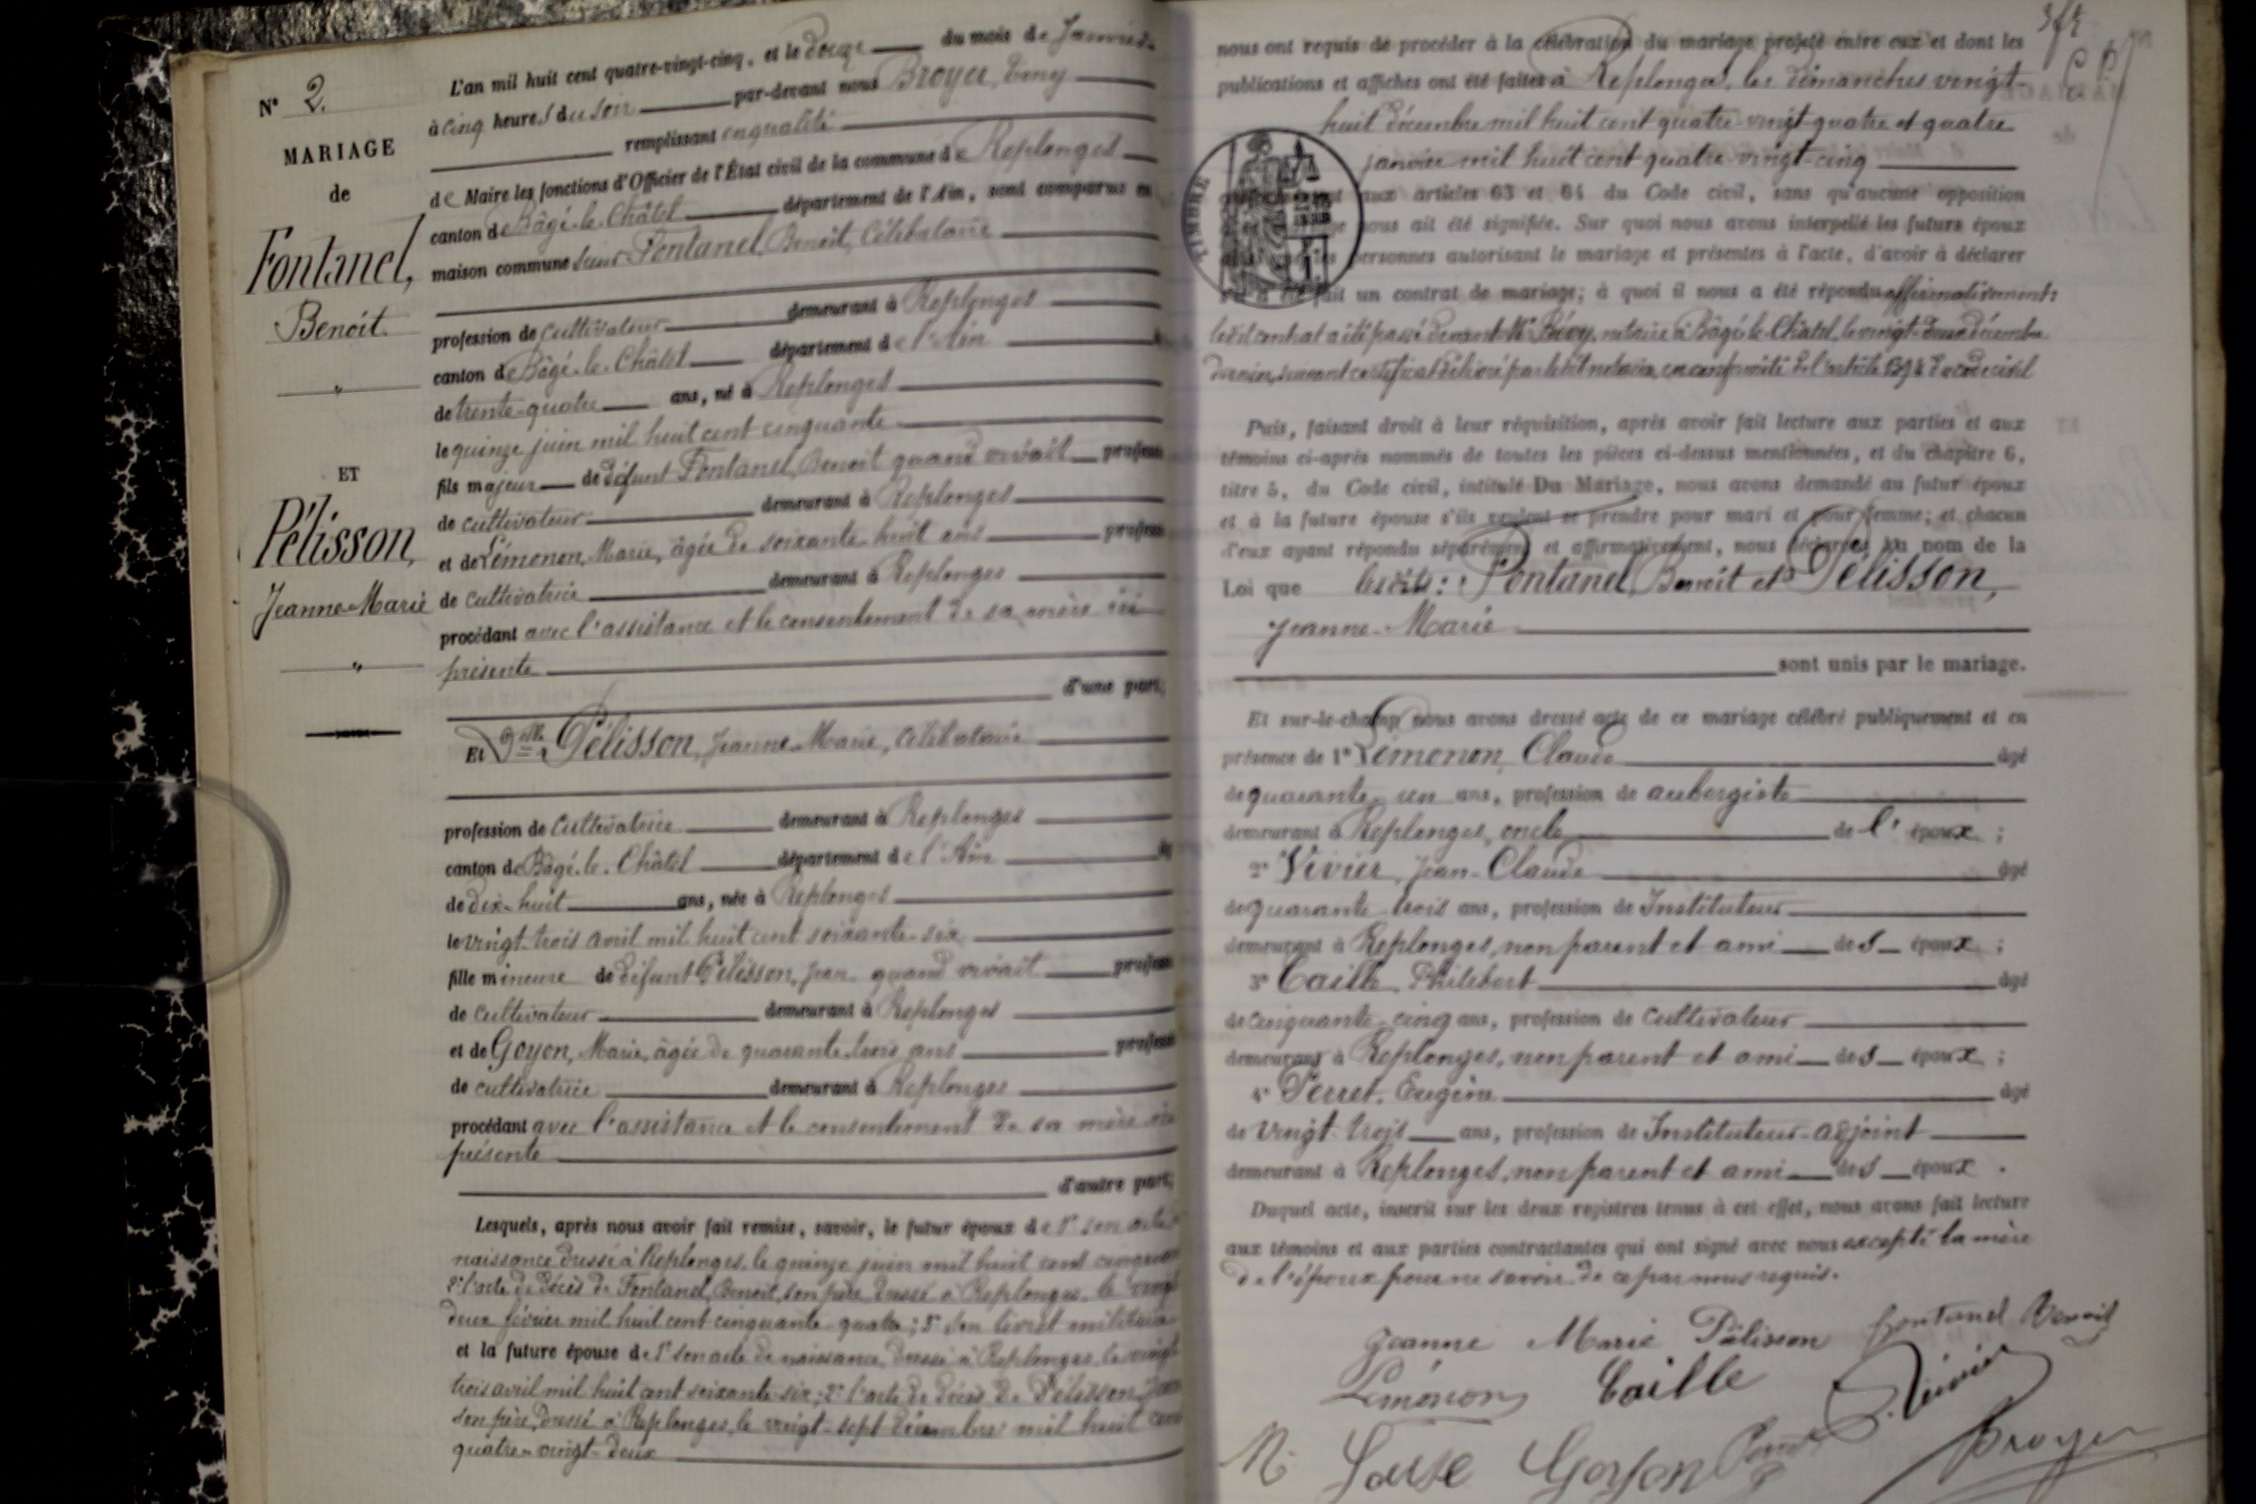 N° 2.
MARIAGE
de
Fontanel,
Benoit.
ET
Pélisson,
Jeanne-Marie
L'an mil huit cent quatre-vingt-cinq, et le douze du mois de Janvier
à cinq heures du soir par-devant nous Broyer, Tony
remplissant en qualité
de Maire les fonctions d'Officier de l'État civil de la commune de Replonges
canton de Bâgé-le-Châtel département de l'Ain, sont comparus en
maison commune sieur Fontanel, Benoit, Célibataire
profession de cultivateur demeurant à Replonges
canton de Bâgé-le-Châtel département de l'Ain
de trente-quatre ans, né à Replonges
le quinze juin mil huit cent cinquante
fils majeur de défunt Fontanel, Benoit quand vivait profession
de cultivateur demeurant à Replonges
et de Lémonon, Marie, âgée de soixante-huit ans profession
de cultivatrice demeurant à Replonges
procédant avec l'assistance et le consentement de sa mère ici
présente
d'une part;
Et Delle Pélisson, Jeanne-Marie, célibataire
profession de cultivatrice demeurant à Replonges
canton de Bâgé-le-Châtel département de l'Ain
de dix-huit ans, née à Replonges
le vingt-trois avril mil huit cent soixante-six
fille mineure de défunt Pélisson, Jean quand vivait profession
de cultivateur demeurant à Replonges
et de Goyon, Marie, âgée de quarante-trois ans profession
de cultivatrice demeurant à Replonges
procédant avec l'assistance et le consentement de sa mère ici
présente
d'autre part;
Lesquels, après nous avoir fait remise, savoir, le futur époux de 1° son acte
naissance dressé à Replonges, le quinze juin mil huit cent cinquante
2° l'acte de décès de Fontanel, Benoit, son père, dressé à Replonges, le vingt
deux février mil huit cent cinquante-quatre; 3° son livret militaire
et la future épouse de 1° son acte de naissance, dressé à Replonges, le vingt
trois avril mil huit cent soixante-six; 2° l'acte de décès de Pélisson, Jean
son père, dressé à Replonges, le vingt-sept décembre mil huit cent
quatre-vingt-deux
nous ont requis de procéder à la célébration du mariage projeté entre eux et dont les
publications et affiches ont été faites à Replonges, les dimanches vingt-
huit décembre mil huit cent quatre-vingt-quatre et quatre
janvier mil huit cent quatre-vingt-cinq
TIMBRE
aux articles 63 et 64 du Code civil, sans qu'aucune opposition
nous ait été signifiée. Sur quoi nous avons interpellé les futurs époux
personnes autorisant le mariage et présentes à l'acte, d'avoir à déclarer
fait un contrat de mariage; à quoi il nous a été répondu affirmativement;
ledit contrat a été passé devant Me notaire à Bâgé-le-Châtel, le vingt-deux décembre
dernier, suivant certificat délivré par ledit notaire, en conformité de l'article 1394 du code civil
Puis, faisant droit à leur réquisition, après avoir fait lecture aux parties et aux
témoins ci-après nommés de toutes les pièces ci-dessus mentionnées, et du chapitre 6,
titre 5, du Code civil, intitulé Du Mariage, nous avons demandé au futur époux
et à la future épouse s'ils veulent se prendre pour mari et pour femme; et chacun
d'eux ayant répondu séparément et affirmativement, nous déclarons au nom de la
Loi que lesdits: Fontanel, Benoit et Pélisson,
Jeanne-Marie
sont unis par le mariage.
Et sur-le-champ nous avons dressé acte de ce mariage célébré publiquement et en
présence de 1° Lémonon, Claude âgé
de quarante-un ans, profession de aubergiste
demeurant à Replonges, oncle de l'époux;
2° Vivier, Jean-Claude âgé
de quarante-trois ans, profession de Instituteur
demeurant à Replonges, non parent et ami des époux;
3° Caille, Philibert âgé
de cinquante-cinq ans, profession de cultivateur
demeurant à Replonges, non parent et ami des époux;
4° Perret, Eugène âgé
de vingt-trois ans, profession de Instituteur-adjoint
demeurant à Replonges, non parent et ami des époux.
Duquel acte, inscrit sur les deux registres tenus à cet effet, nous avons fait lecture
aux témoins et aux parties contractantes qui ont signé avec nous excepté la mère
de l'époux pour ne savoir de ce par nous requis.
Jeanne Marie Pélisson fontanel Benoit
Lémonon Caille Vivier
M. Goyon Perret Broyer